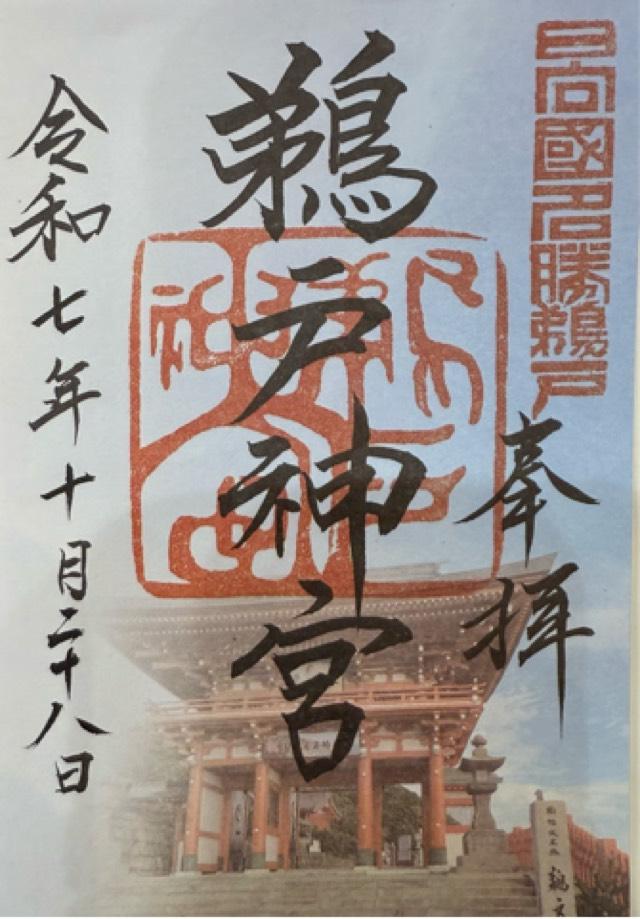 日向國名勝鵜戸
奉拝
鵜戸神宮
令和七年十月二十八日